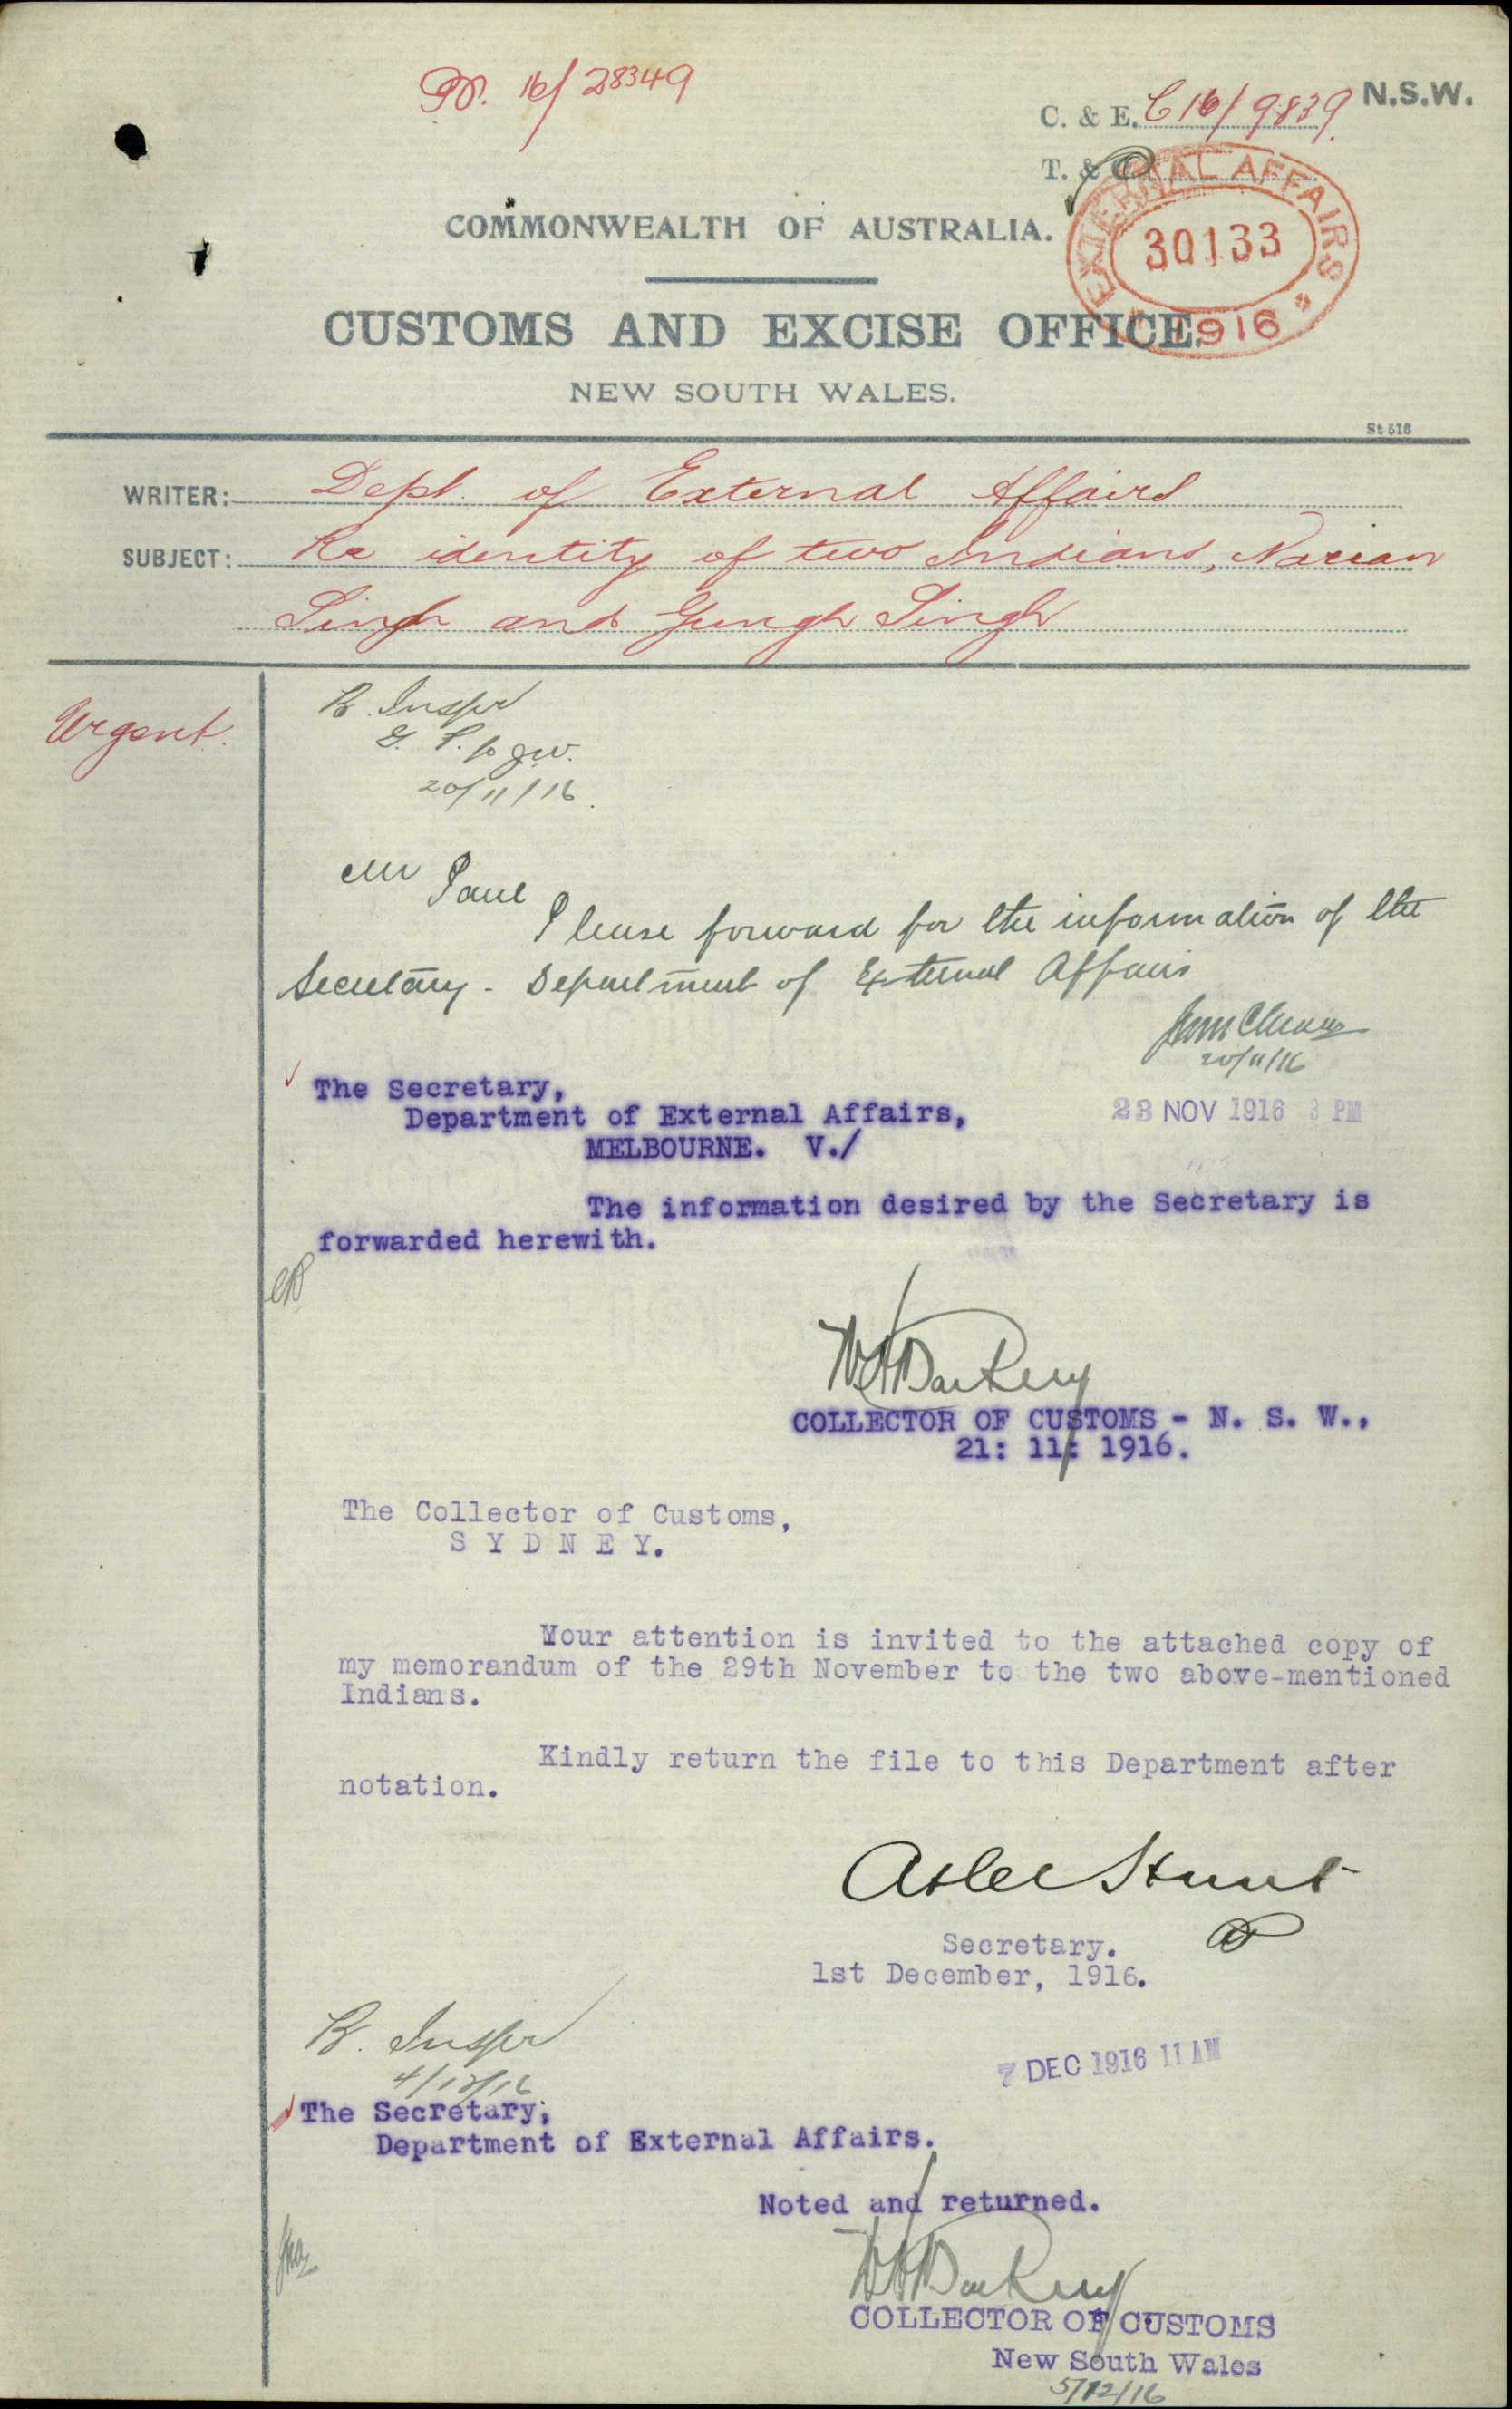 Pr. 16/28349
N.S.W.
C. & E. C16/9839
T. & C.
EXTERNAL AFFAIRS
30133
1916
COMMONWEALTH OF AUSTRALIA.
CUSTOMS AND EXCISE OFFICE.
NEW SOUTH WALES.
St 516
WRITER: Dept. of External Affairs
SUBJECT: Re identity of two Indians, Narian
Singh and Gungh Singh
Urgent.
B. Inspr
20/11/16.
Mr Paul
Please forward for the information of the
Secretary - Department of External Affairs
20/11/16
The Secretary,
Department of External Affairs,
23 NOV 1916 3 PM
MELBOURNE. V./
The information desired by the Secretary is
forwarded herewith.
W H Barkley
COLLECTOR OF CUSTOMS - N. S. W.,
21: 11: 1916.
The Collector of Customs,
S Y D N E Y.
Your attention is invited to the attached copy of
my memorandum of the 29th November to the two above-mentioned
Indians.
Kindly return the file to this Department after
notation.
Atlee Hunt
Secretary.
1st December, 1916.
B. Inspr
4/12/16
7 DEC 1916 11 AM
The Secretary,
Department of External Affairs.
Noted and returned.
W H Barkley
COLLECTOR OF CUSTOMS
New South Wales
5/12/16